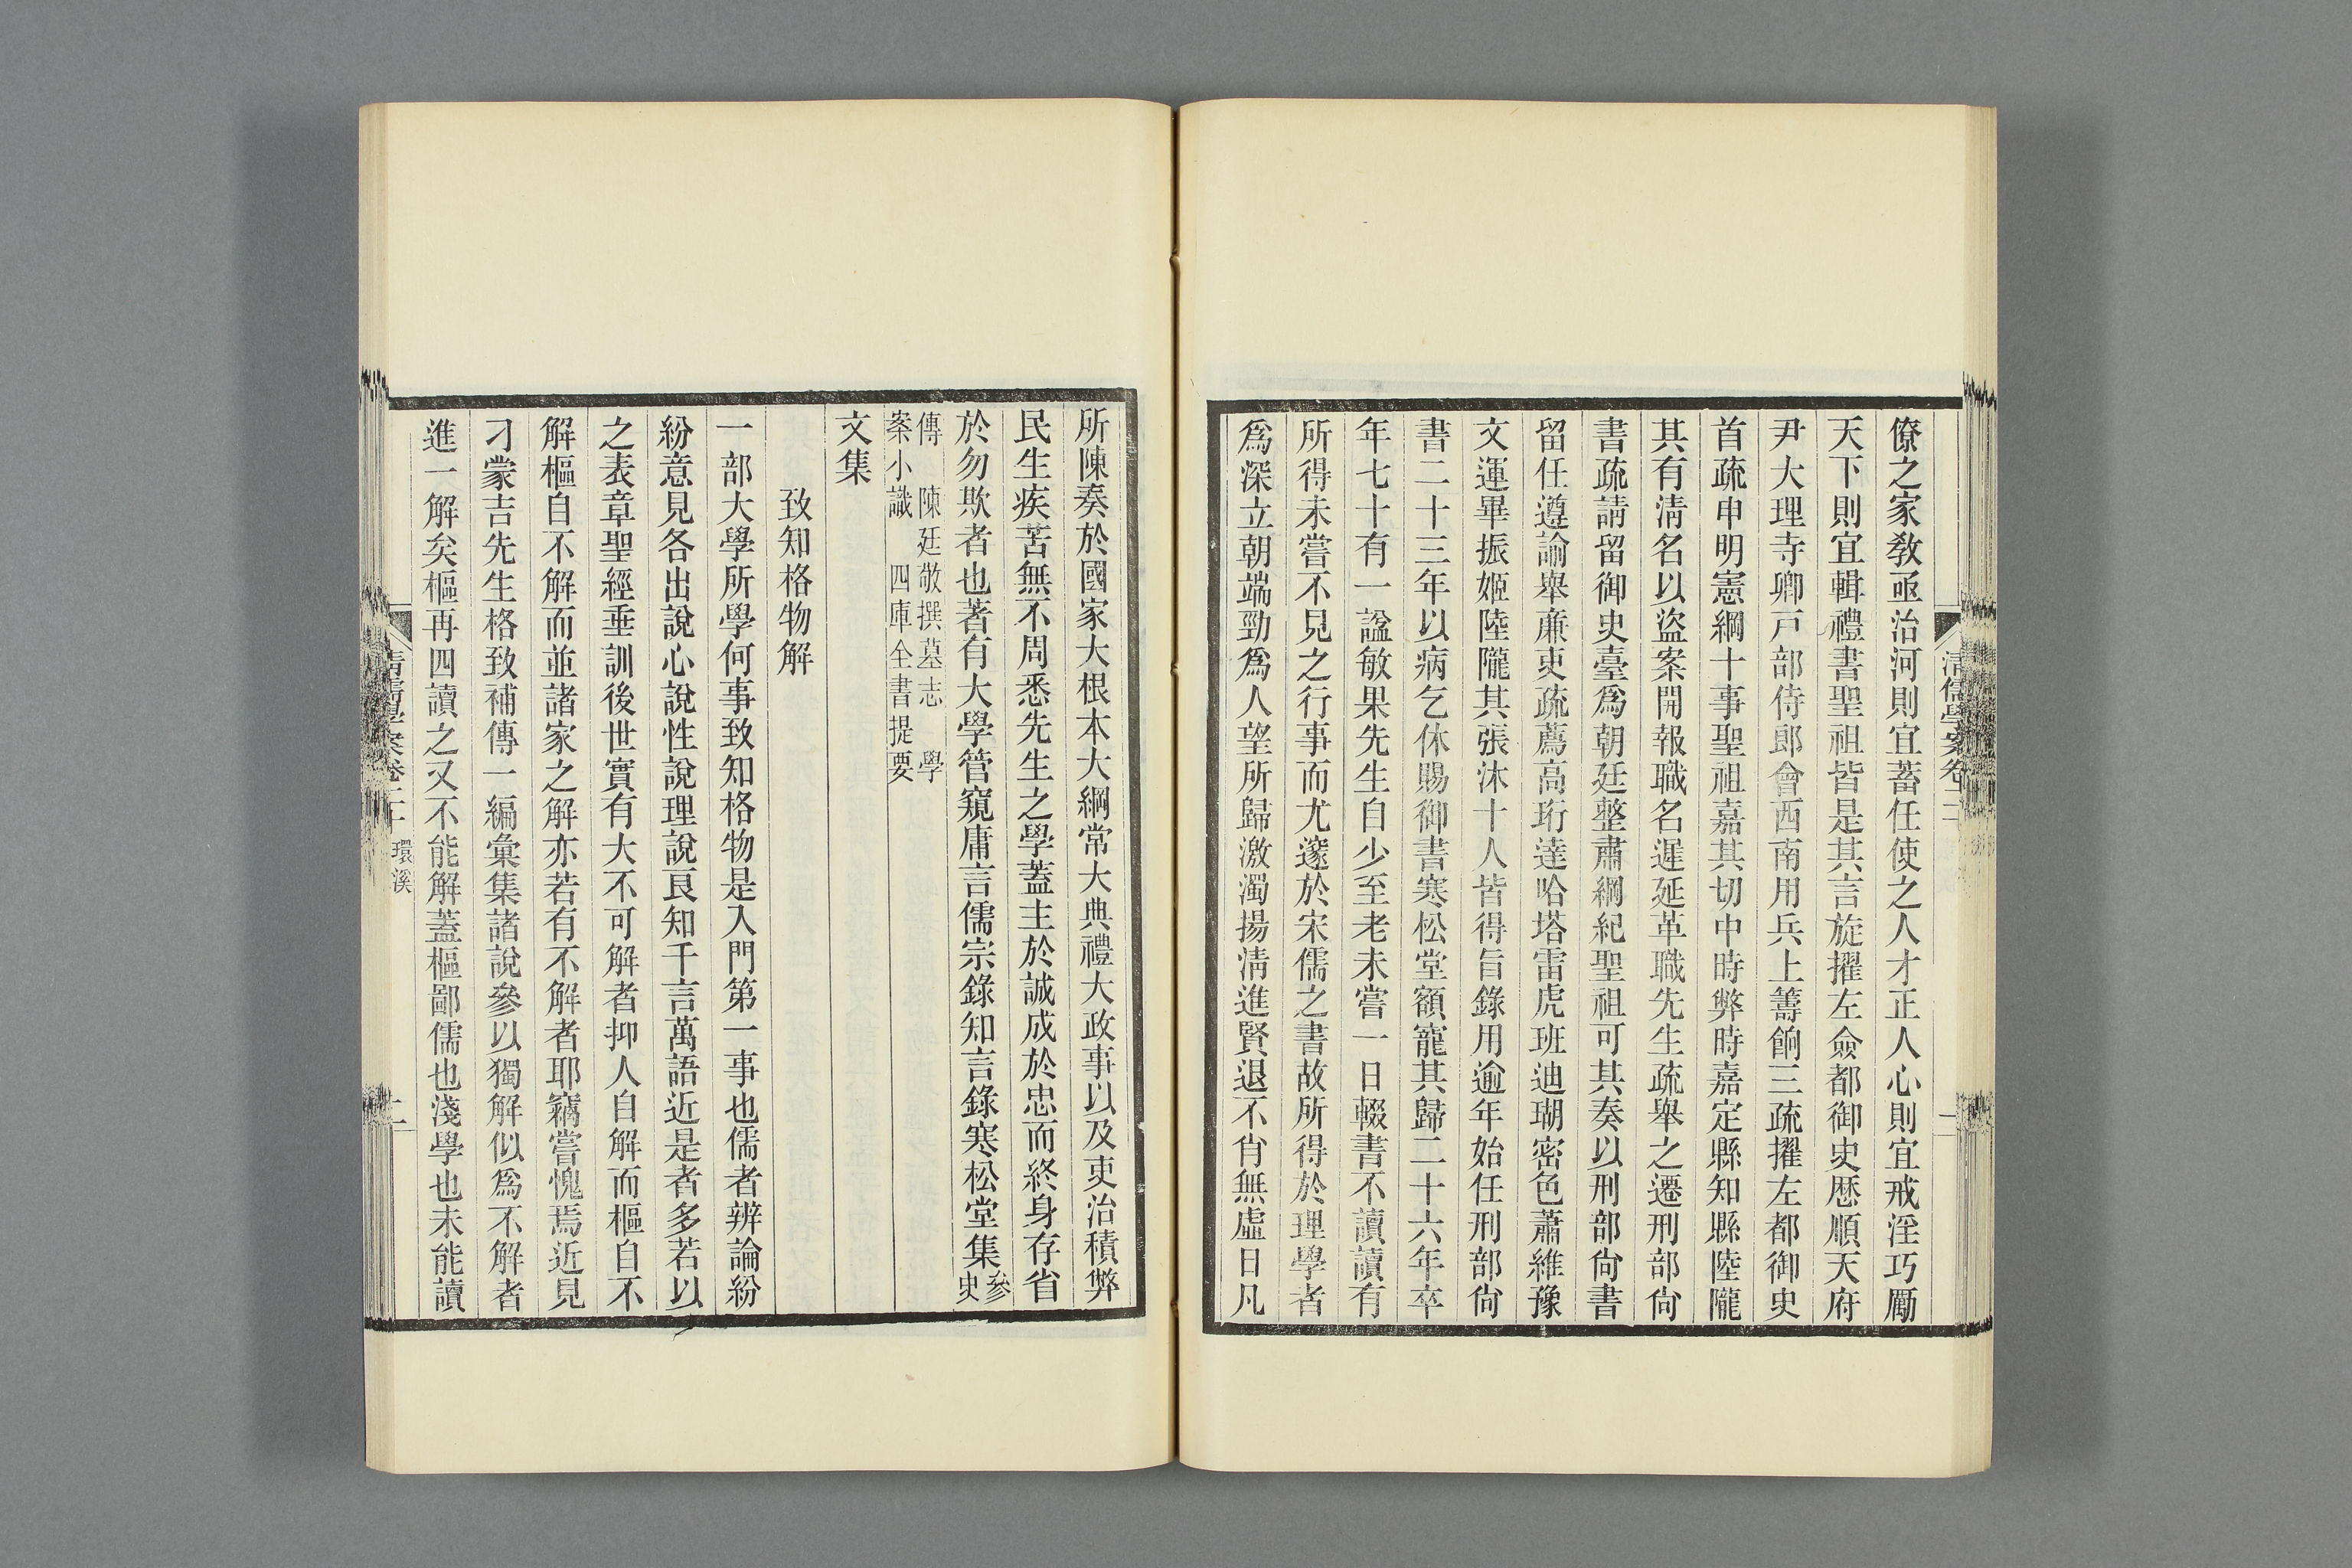 僚之家敎亟治河則宜蓄任使之人才正人心則宜戒淫巧厲
天下則宜輯禮書聖祖皆是其言旋擢左僉都御史歷順天府
尹大理寺卿戸部侍郎會西南用兵上籌餉三疏擢左都御史
首疏申明憲綱十事聖祖嘉其切中時弊時嘉定縣知縣陸隴
其有淸名以盜案開報職名遲延革職先生疏舉之遷刑部尙
書疏請留御史臺爲朝廷整肅綱紀聖祖可其奏以刑部尙書
留任遵諭舉廉吏疏薦高珩達哈塔雷虎班迪瑚密色蕭維豫
文運畢振姬陸隴其張沐十人皆得旨錄用逾年始任刑部尙
書二十三年以病乞休賜御書寒松堂額寵其歸二十六年卒
年七十有一諡敏果先生自少至老未嘗一日輟書不讀讀有
所得未嘗不見之行事而尤邃於宋儒之書故所得於理學者
爲深立朝端勁爲人望所歸激濁揚淸進賢退不肖無虛日凡
所陳奏於國家大根本大綱常大典禮大政事以及吏治積弊
民生疾苦無不周悉先生之學蓋主於誠成於忠而終身存省
於勿欺者也著有大學管窺庸言儒宗錄知言錄寒松堂集參史
傳　陳廷敬撰墓志　學
案小識　四庫全書提要
文集
致知格物解
一部大學所學何事致知格物是入門第一事也儒者辨論紛
紛意見各出說心說性說理說良知千言萬語近是者多若以
之表章聖經垂訓後世實有大不可解者抑人自解而樞自不
解樞自不解而並諸家之解亦若有不解者耶竊嘗愧焉近見
刁蒙吉先生格致補傳一編彙集諸說參以獨解似爲不解者
進一解矣樞再四讀之又不能解蓋樞鄙儒也淺學也未能讀
淸儒學案卷二十　環溪　二